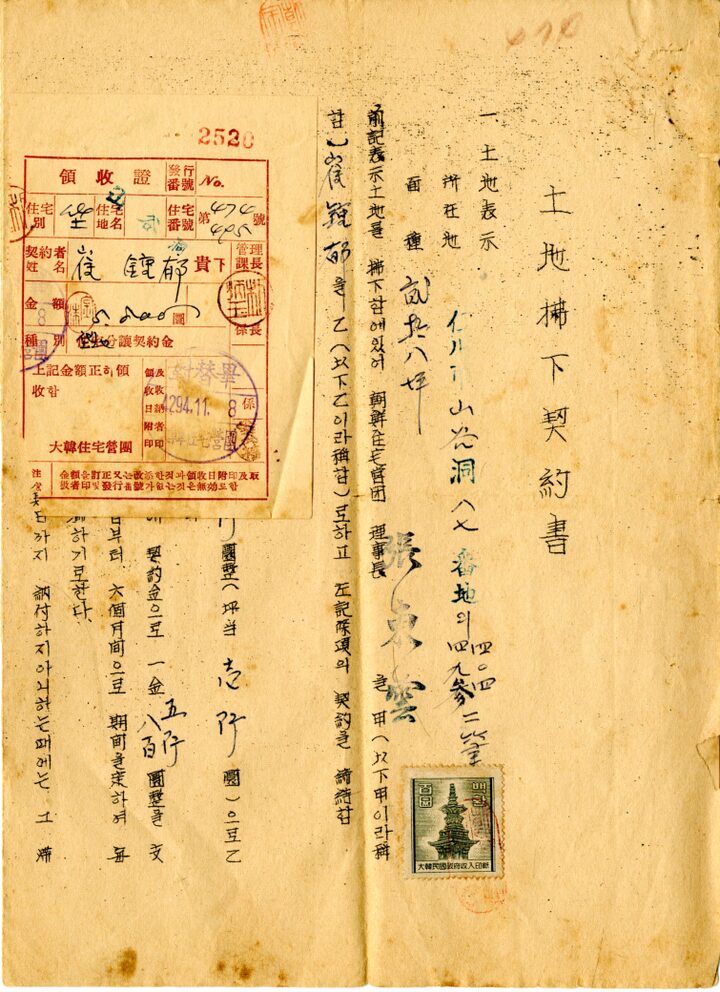 土地拂下契約書
一 土地表示
所在地 仁川市 山谷洞 八七 番地의 四九四 四九參 二筆
面種 貳拾八坪
前記表示土地를 拂下함에있어 朝鮮住宅營団 理事長 張東雲 을 甲(以下甲이라稱
함) 崔鍾郁 을 乙(以下乙이라稱함)로하고 左記條項의 契約을 締結함
圜整(坪当 壱阡 圜)으로 乙
契約金으로 一金 五阡八百 圜整을 支
日부터 六個月間으로 期間을定하여 每
하기로한다.
日까지 納付하지아니하는때에는 그 滯
2520
領收證 發行番號 No.
住宅別 住宅地名 住宅番號 第 474 495 號
契約者姓名 崔鍾郁 貴下 管理課長
金額 5,800 圜 係長
種別 分讓契約金
上記金額正히領收함
領收日附印 及收納者印 係
大韓住宅營團
4294.11.8
注意 金額을訂正又는改添한것과領收日附印及取扱者印및發行番號가없는것은無効로함
百圜 백환
大韓民國政府收入印紙